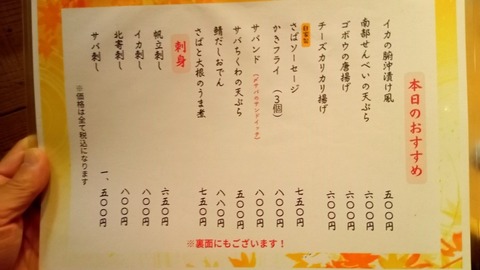 本日のおすすめ
イカの腑沖漬け風 五〇〇円
南部せんべいの天ぷら 六〇〇円
ゴボウの唐揚げ 六〇〇円
チーズカリカリ揚げ 六〇〇円
自家製 さばソーセージ 七五〇円
かきフライ (3個) 八〇〇円
サバンド (〆サバのサンドイッチ) 八〇〇円
サバちくわの天ぷら 五〇〇円
鯖だしおでん 八八〇円
さばと大根のうま煮 七五〇円
刺身
帆立刺し 六五〇円
イカ刺し 八〇〇円
北寄刺し 八〇〇円
サバ刺し 一、五〇〇円
※価格は全て税込になります
※裏面にもございます！